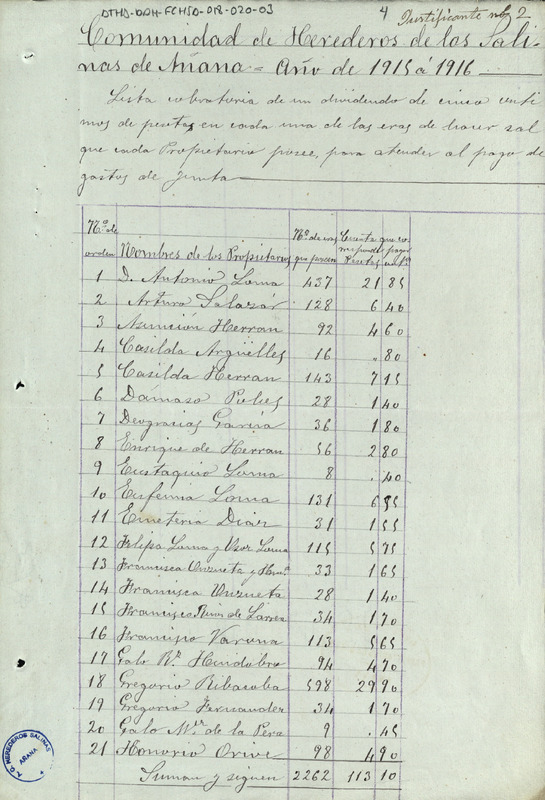 DTHD-DDH-FCHSD-018-020-03
4 Justificante nº 2
Comunidad de Herederos de las Sali-
nas de Añana = Año de 1915 á 1916
Lista cobratoria de un dividendo de cinco cénti-
mos de peseta en cada una de las eras de hacer sal
que cada Propietario posee, para atender al pago de
gastos de Junta
Nº de orden Nombres de los Propietarios Nº de eras que poseen Cuenta que co-rresponde pagar Pesetas
1 D. Antonio Loma 437 21 85
2 Arturo Salazár 128 6 40
3 Asunción Herran 92 4 60
4 Casilda Argüelles 16 . 80
5 Casilda Herran 143 7 15
6 Dámaso 28 1 40
7 Deogracias García 36 1 80
8 Enrique de Herran 56 2 80
9 Eustaquio Loma 8 . 40
10 Eufemia Loma 131 6 55
11 Emeteria Diaz 31 1 55
12 Felipa Loma y Loma 115 5 75
13 Francisca Unzueta y Hna. 33 1 65
14 Francisca Unzueta 28 1 40
15 Francisco Ruiz de Larrea 34 1 70
16 Francisco Varona 113 5 65
17 Galo Rz Huidobro 94 4 70
18 Gregorio Ribacoba 598 29 90
19 Gregorio Fernandez 34 1 70
20 Galo de la Pera 9 . 45
21 Honorio Orive 98 4 90
Suman y siguen 2262 113 10
HEREDEROS SALINAS
AÑANA